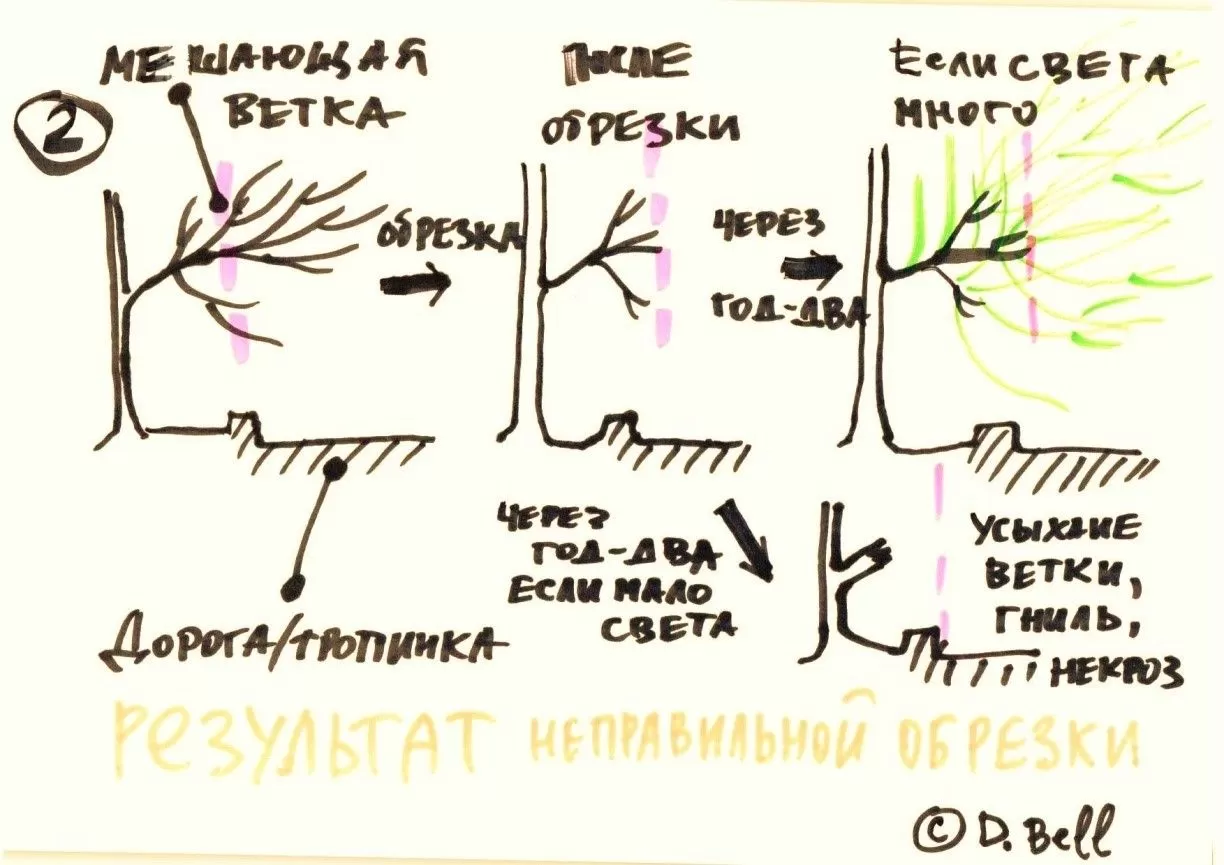 2
МЕШАЮЩАЯ
ВЕТКА
ОБРЕЗКА
ПОСЛЕ
ОБРЕЗКИ
ЧЕРЕЗ
ГОД-ДВА
ЕСЛИ СВЕТА
МНОГО
ДОРОГА/ТРОПИНКА
ЧЕРЕЗ
ГОД-ДВА
ЕСЛИ МАЛО
СВЕТА
УСЫХАНИЕ
ВЕТКИ,
ГНИЛЬ,
НЕКРОЗ
РЕЗУЛЬТАТ НЕПРАВИЛЬНОЙ ОБРЕЗКИ
© D. Bell